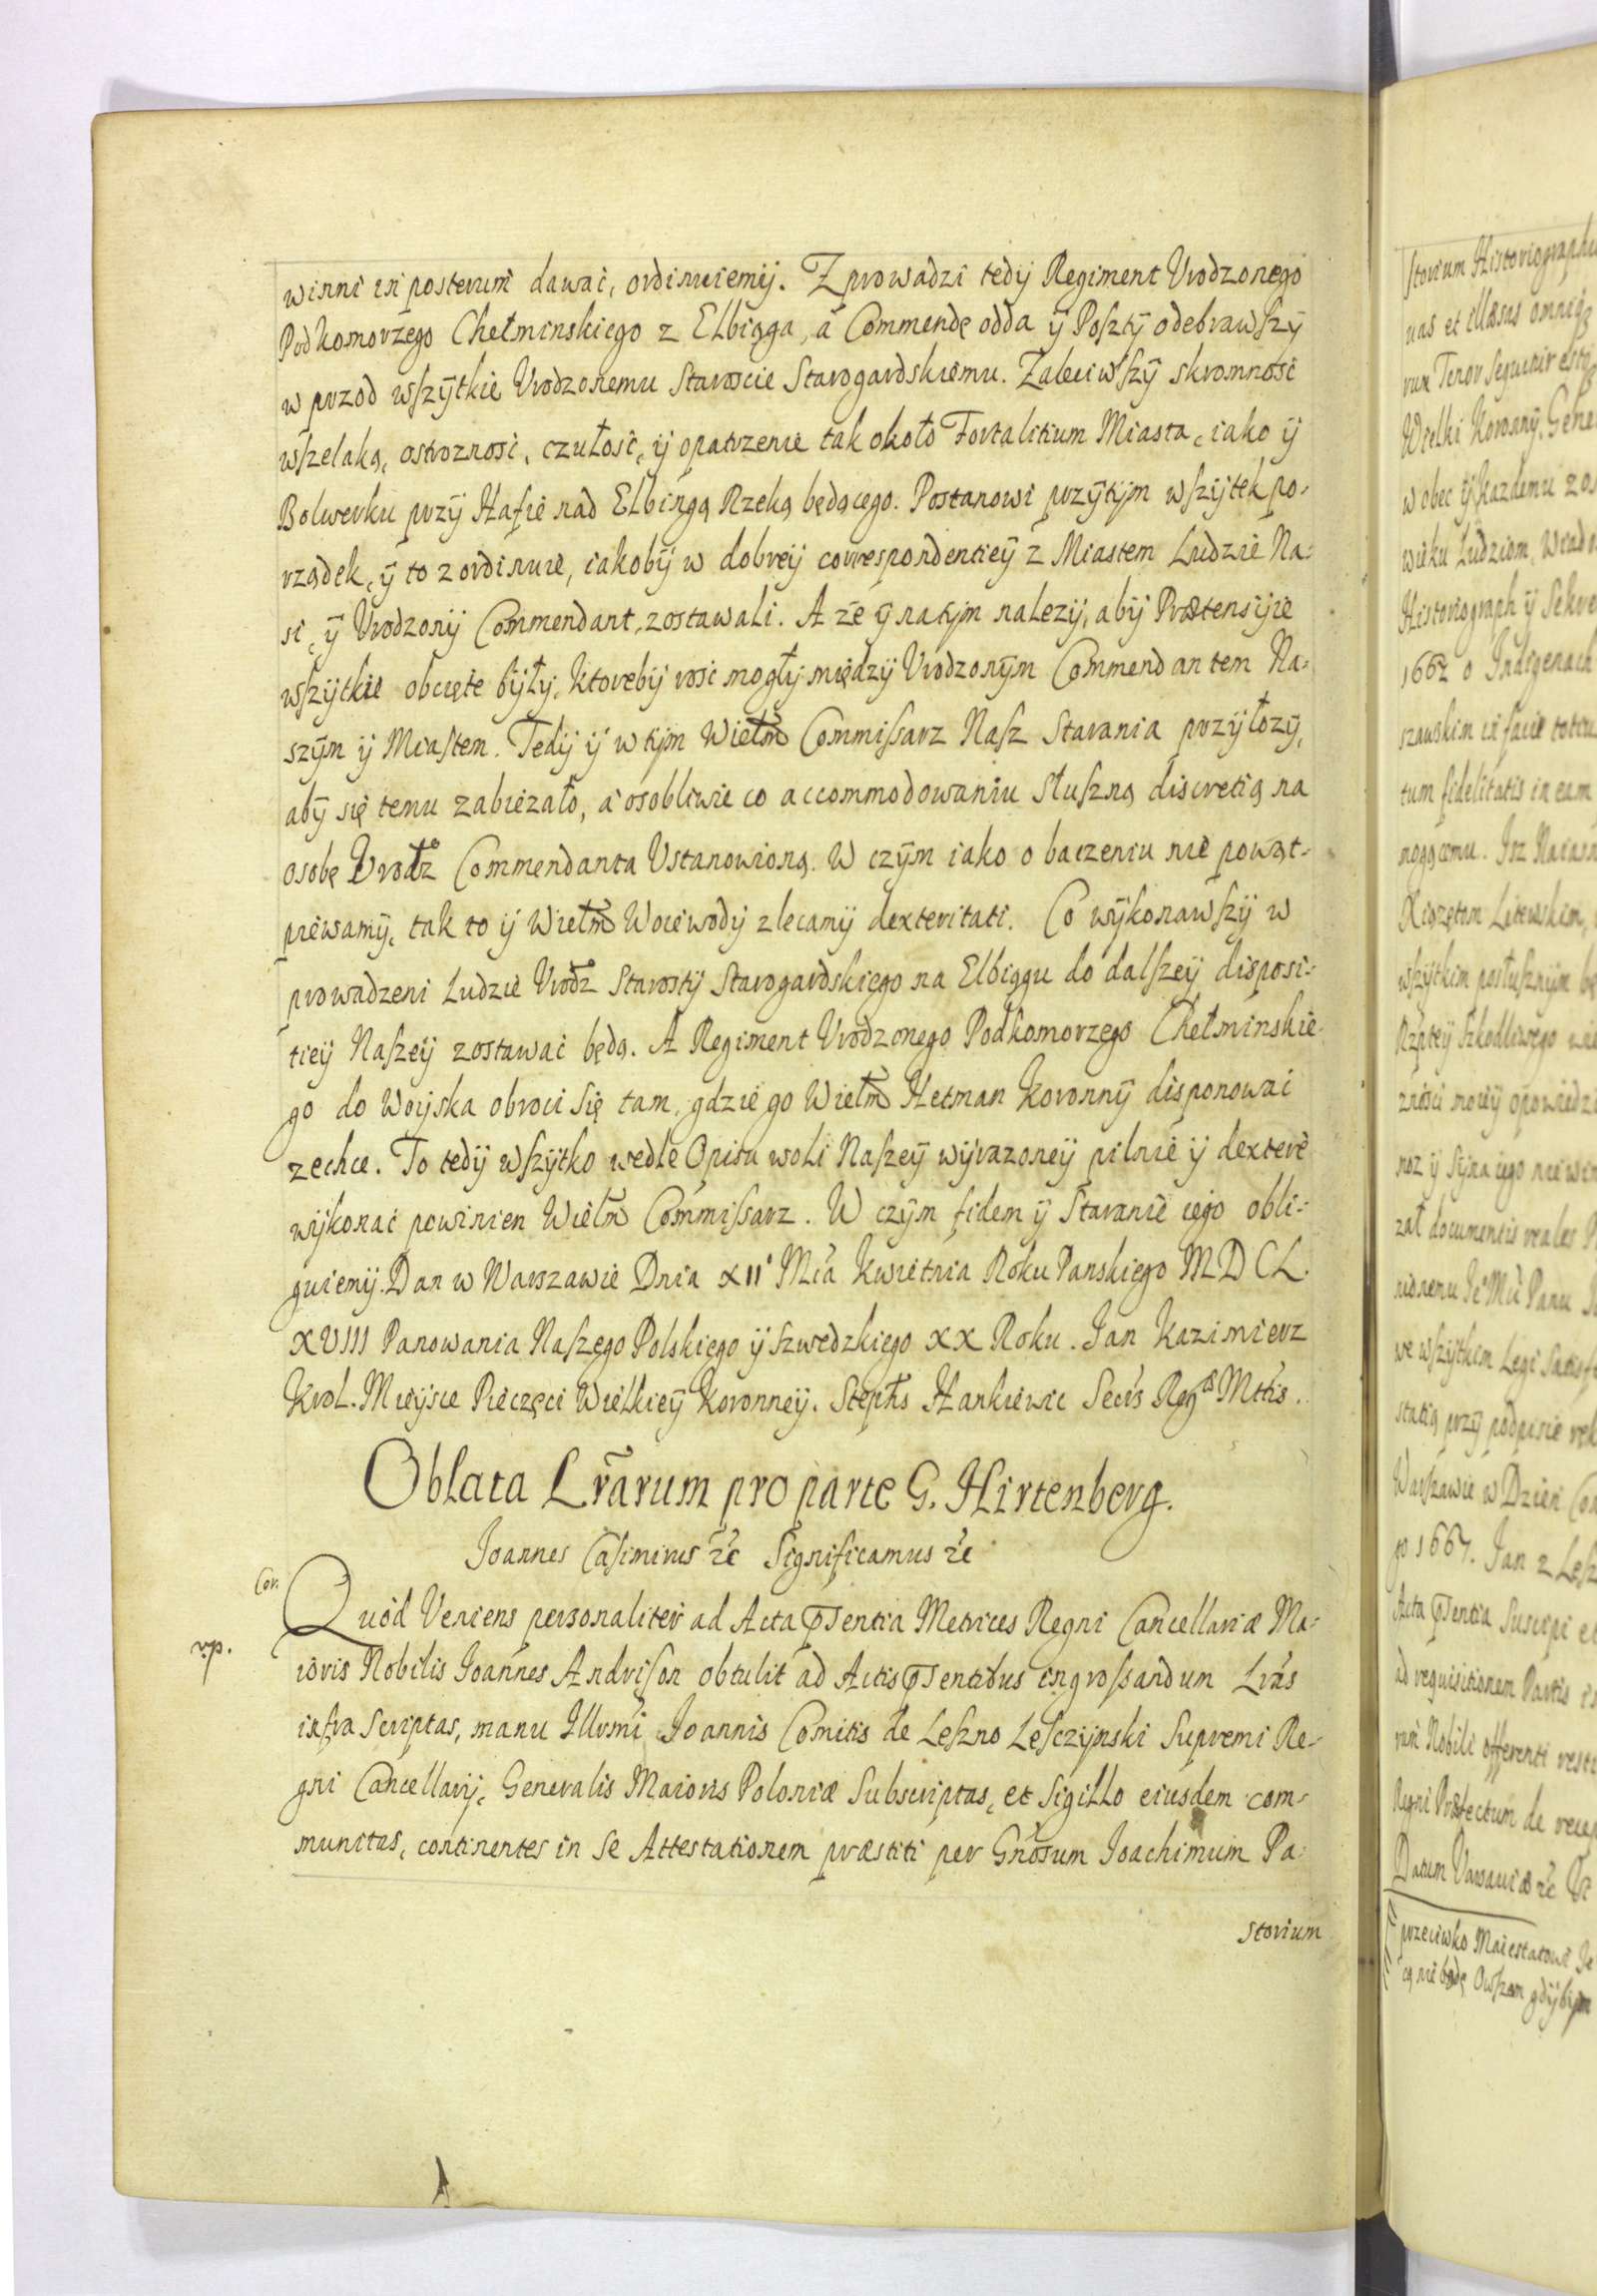 winni in posterum dawać, ordinuiemÿ. Zprowadzi tedÿ Regiment Vrodzonego
Podkomorzego Chełminskiego z Elbiąga, á Commendę odda ÿ Posztÿ odebrawszÿ
w przod wszÿtkie Vrodzonemu Staroscie Starogardskiemu. Zaleciwszÿ skromnosć
wszelaką, ostroznosć, czułosć, ÿ opatrzenie tak około Fortalitium Miasta, iako ÿ
Bolwerku przÿ Hafie nad Elbingą Rzeką będącego. Postanowi przÿtÿm wszÿtek po-
rządek, ÿ to zordinuie, iakobÿ w dobreÿ correspondentieÿ z Miastem Ludzie Na-
si, ÿ Vrodzonÿ Commendant, zostawali. A że ÿ natÿm nalezÿ, abÿ Prætensÿie
wszÿtkie obcięte bÿłÿ, ktorebÿ rosć mogłÿ międzÿ Vrodzonÿm Commendantem Na-
szÿm ÿ Miastem. Tedÿ ÿ w tÿm Wielm Commissarz Nasz Starania przÿłozÿ,
abÿ się temu zabiezało, á osobliwie co accommodowaniu Słuszną discretią na
osobę Vrodz Commendanta Vstanowioną. W czÿm iako o baczeniu nie powąt-
piewamÿ, tak to ÿ Wielm Woiewodÿ zlecamÿ dexteritati. Co wÿkonawszÿ w
prowadzeni Ludzie Vrodz Starostÿ Starogardskiego na Elbiągu do dalszeÿ disposi-
tieÿ Naszeÿ zostawać będą. A Regiment Vrodzonego Podkomorzego Chełminskie-
go do Woÿska obroci się tam, gdzie go Wielm Hetman Koronnÿ disponować
zechce. To tedÿ wszÿtko wedle Opisu woli Naszeÿ wÿrazoneÿ pilnie ÿ dexterè
wÿkonać powinien Wielm Commissarz. W czÿm fidem ÿ Staranie iego obli-
guiemÿ. Dan w Warszawie Dnia XII Mca Kwietnia Roku Panskiego MDCL
XVIII Panowania Naszego Polskiego ÿ Szwedzkiego XX Roku. Jan Kazimierz
Krol. Mieÿsce Pieczęci Wielkieÿ Koronneÿ. Stephs Hankiewic Secrs Regæ Mttis.
Oblata Lrarum pro parte G. Hirtenberg.
Joannes Casimirus &c Significamus &c
Cor.
Quod Veniens personaliter ad Acta pñsentia Metrices Regni Cancellariæ Ma-
rp.
ioris Nobilis Joannes Andrison obtulit ad Actis pñsentibus ingrossandum Lras
infra Scriptas, manu Illrmi Joannis Comitis de Leszno Lesczÿnski Supremi Re-
gni Cancellarÿ, Generalis Maioris Poloniæ Subscriptas, et Sigillo eiusdem com-
munitas, continentes in Se Attestationem præstiti per Gnosum Joachimum Pa-
storium

storium Historiographu
uas et illæsas omniq
rum Tenor Sequitur estq
Wielki Koronnÿ, Gene
w obec ÿ kazdemu zos
wieku Ludziom, Wiado
Historiograph ÿ Sekre
1662 o Indigenach
szawskim in facie totiu
tum fidelitatis in eam
nogącemu. Isz Naiasn
Xiązętom Litewskim,
wszÿtkim posłusznÿm bę
Rzpteÿ Szkodliwego
znosci moieÿ opowiedzi
noz ÿ Sÿna iego
zał documentis reales P
nionemu Je Mci Panu
we wszÿtkim Legi Satisf
statią przÿ podpisie ręk
Warszawie w Dzien
go 1667. Jan z Lesz
Acta pñsentia Suscipi et
ad requisitionem Partis
rum Nobili offerenti resti
Regni Protectum de recep
Datum Varsaviæ &c
przeciwko Maiestatowi Je
cą nie będę Owszem gdÿbÿm